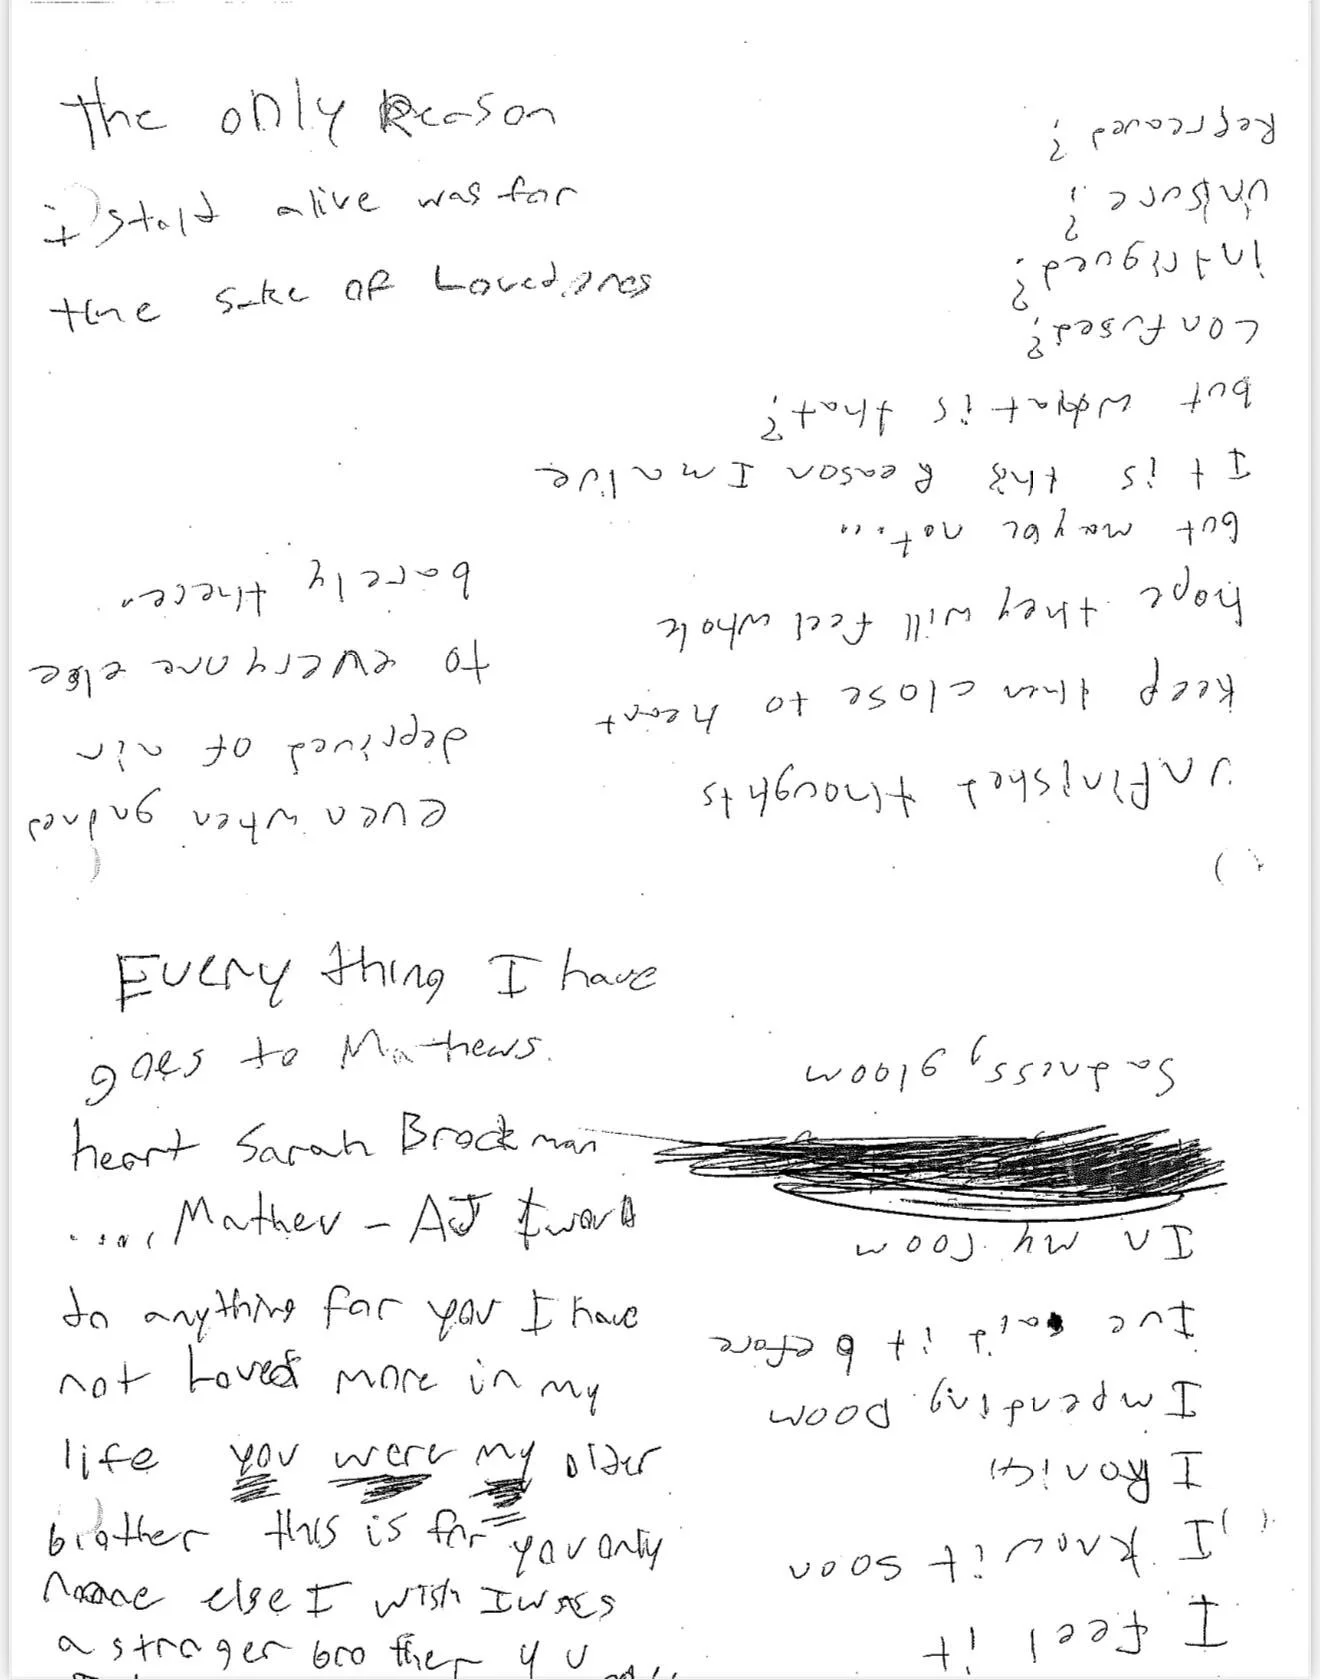 the only Reason
I staId alive was for
the sake of Loved ones
Every thing I have
goes to Mathews.
heart Sarah Brockman
..... Mathev - AJ I would
do anything for you I have
not Loved more in my
life you were my older
brother this is for you only
none else I wish I was
a strager brother
I feel it
I know it soon
Impending Doom
Ive said it before
In my room
Sadness, gloom
unfinished thoughts
keep them close to heart
hope they will feel whole
but maybe not...
It is the Reason Im alive
but what is that?
confused?
intrigued?
unsure?
even when
deprived of air
to everyone else
barely there